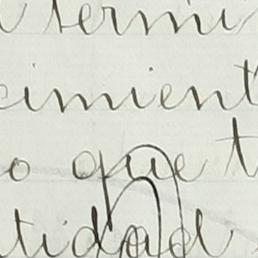 termi
cimient
o que t
tidad